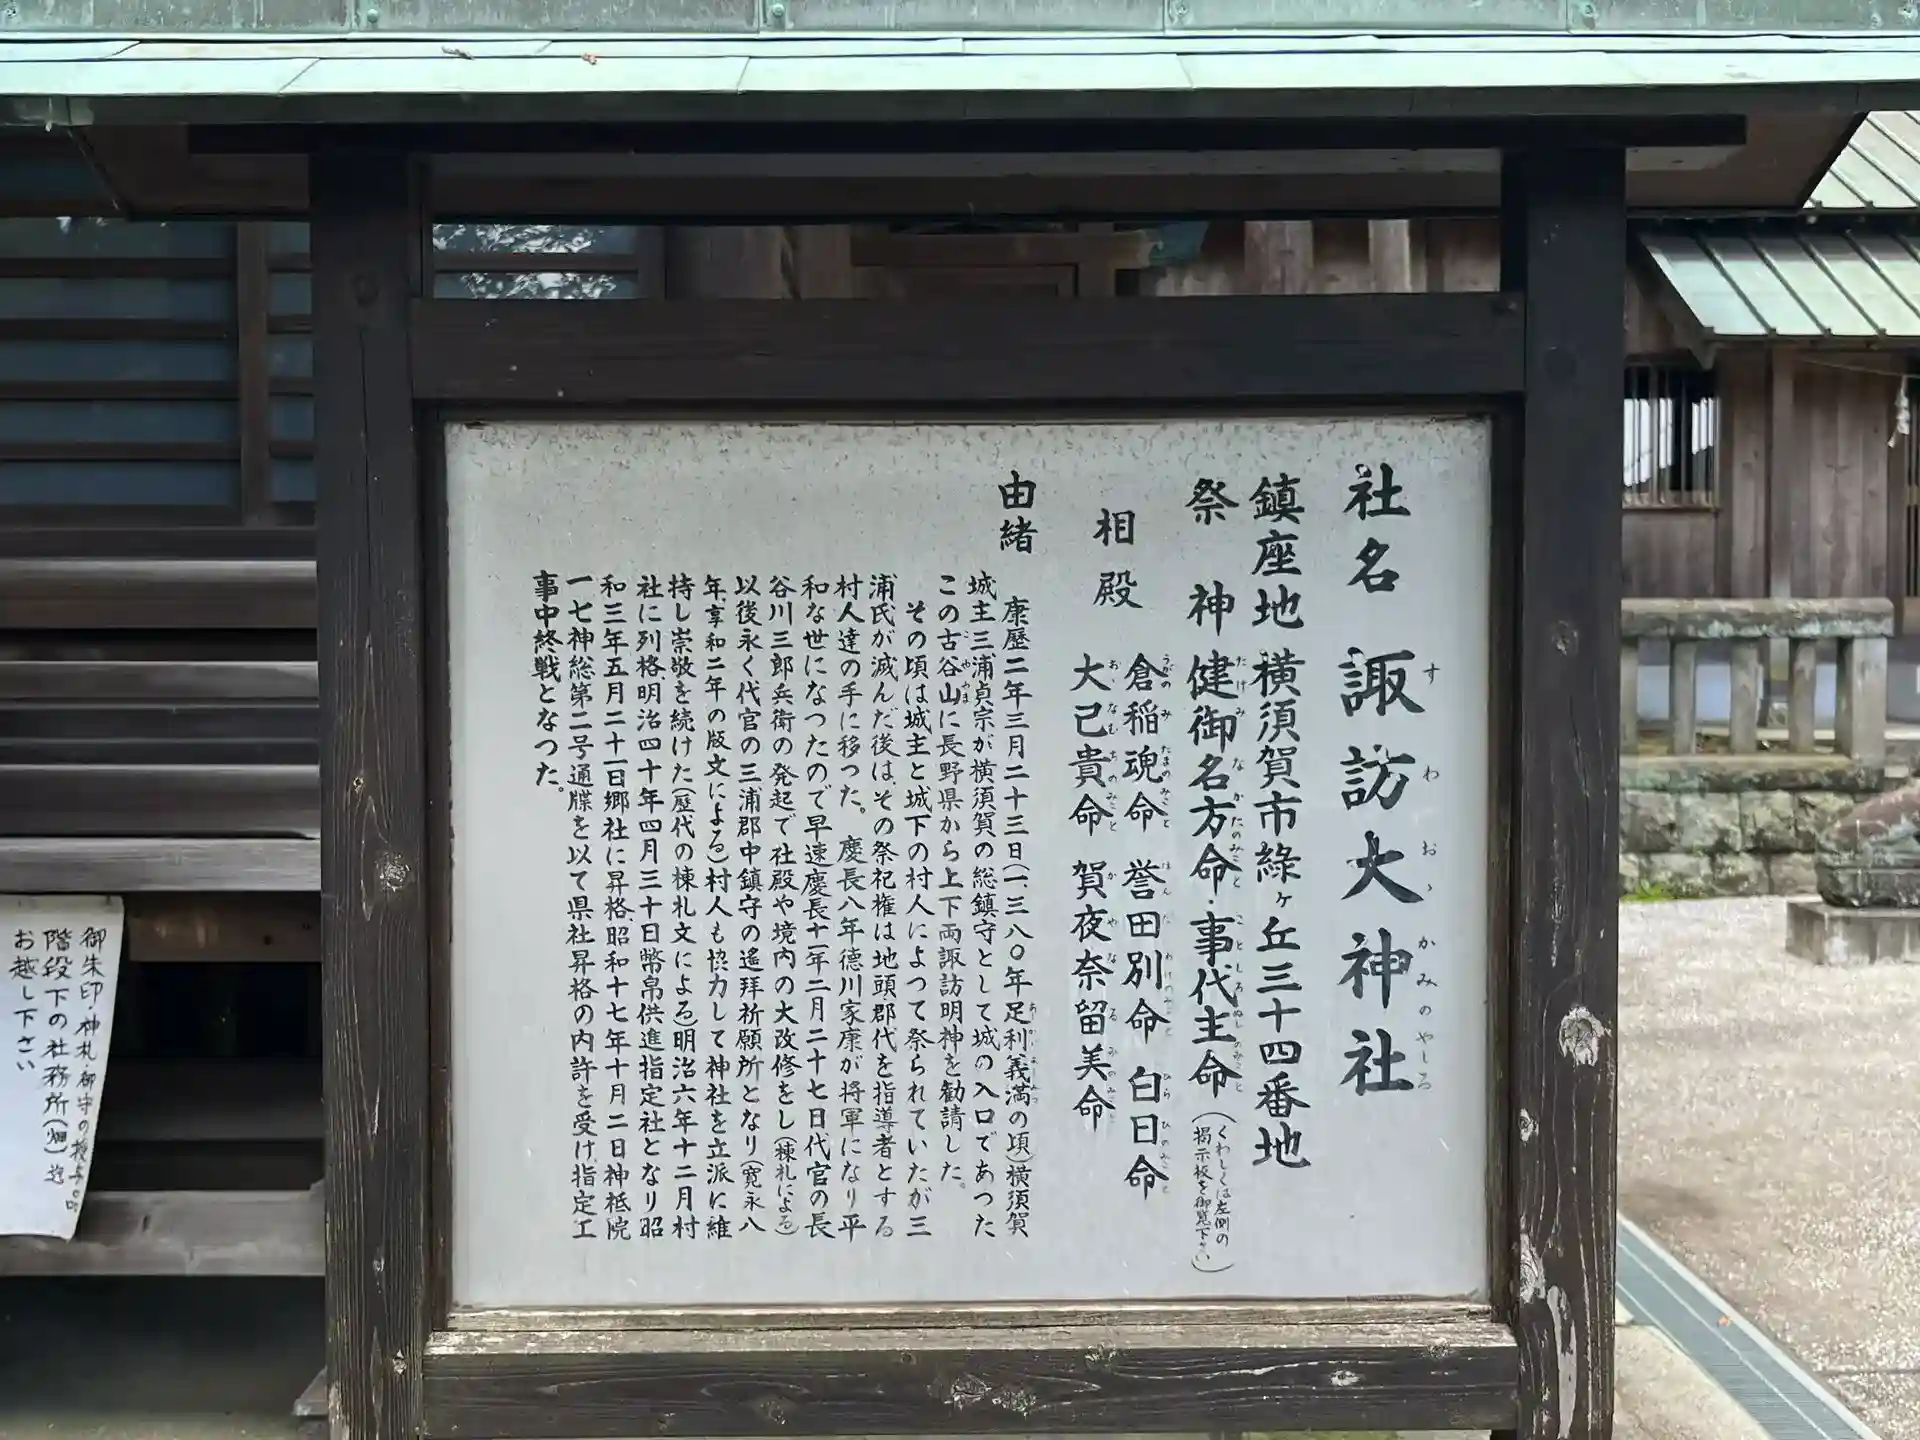 社名 諏訪大神社
すわおゝかみのやしろ
鎮座地 横須賀市緑ヶ丘三十四番地
祭神 健御名方命・事代主命(くわしくは左側の掲示板を御覧下さい)
たけみなかたのみこと ことしろぬしのみこと
相殿
倉稲魂命 誉田別命 白日命
うがのみたまのみこと ほんだわけのみこと ひらひのみこと
大己貴命 賀夜奈留美命
おゝなむちのみこと かやなるみのみこと
由緒
康歴二年三月二十三日(一、三八〇年足利義満の頃)横須賀
城主三浦貞宗が横須賀の総鎮守として城の入口であつた
この古谷山に長野県から上下両諏訪明神を勧請した。
その頃は城主と城下の村人によつて祭られていたが三
浦氏が滅んだ後は、その祭祀権は地頭、郡代を指導者とする
村人達の手に移つた。慶長八年德川家康が将軍になり平
和な世になつたので早速慶長十一年二月二十七日代官の長
谷川三郎兵衛の発起で社殿や境内の大改修をし(棟札による)
以後永く代官の三浦郡中鎮守の遙拝祈願所となり(寛永八
年、享和二年の版文による)村人も協力して神社を立派に維
持し崇敬を続けた(歴代の棟札文による)明治六年十二月村
社に列格、明治四十年四月三十日幣帛供進指定社となり昭
和三年五月二十一日郷社に昇格、昭和十七年十月二日神祇院
一七神総第二号通牒を以て県社昇格の内許を受け、指定工
事中終戦となつた。
御朱印・神札・御守の授与品
階段下の社務所(畑)迄
お越し下さい